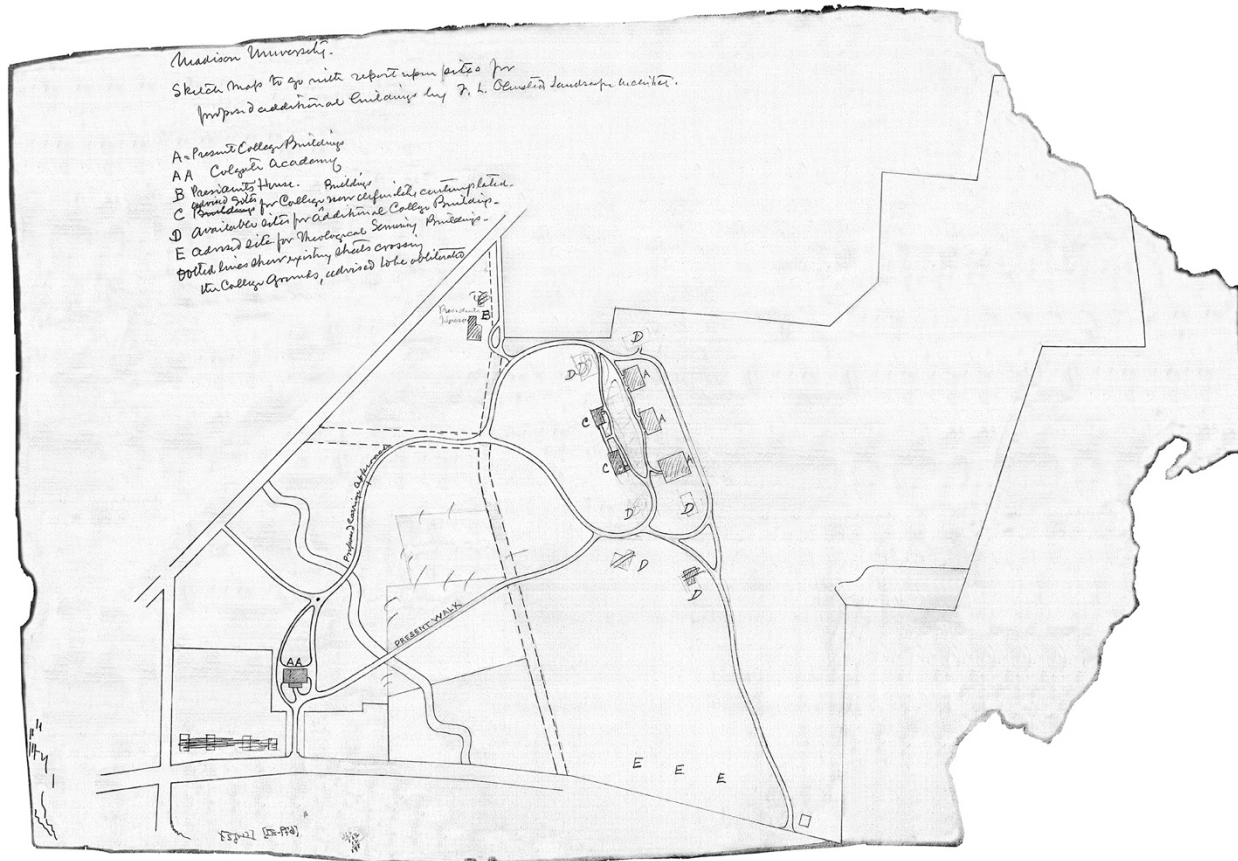 Madison University.
Sketch Map to go with report upon sites for
proposed additional buildings by F. L. Olmsted Landscape Architect.
A = Present College Buildings
AA Colgate Academy
B Presidents House.
Buildings
advised sites
C Buildings for College now definitely contemplated.
D available sites for additional College Buildings.
E advised site for Theological Seminary Buildings.
Dotted lines show existing streets crossing
the College Grounds, advised to be obliterated
Presidents
House
B
D
D
A
C
A
C
A
D
D
D
D
Proposed Carriage Approach
PRESENT WALK
AA
E E E